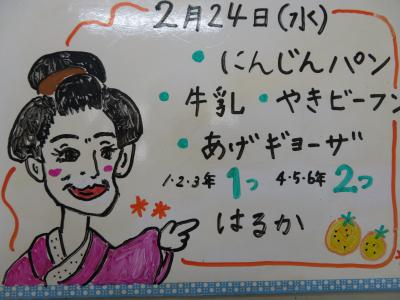 2月24日(水)
• にんじんパン
• 牛乳 • やきビーフン
• あげギョーザ
1・2・3年 1つ 4・5・6年 2つ
はるか